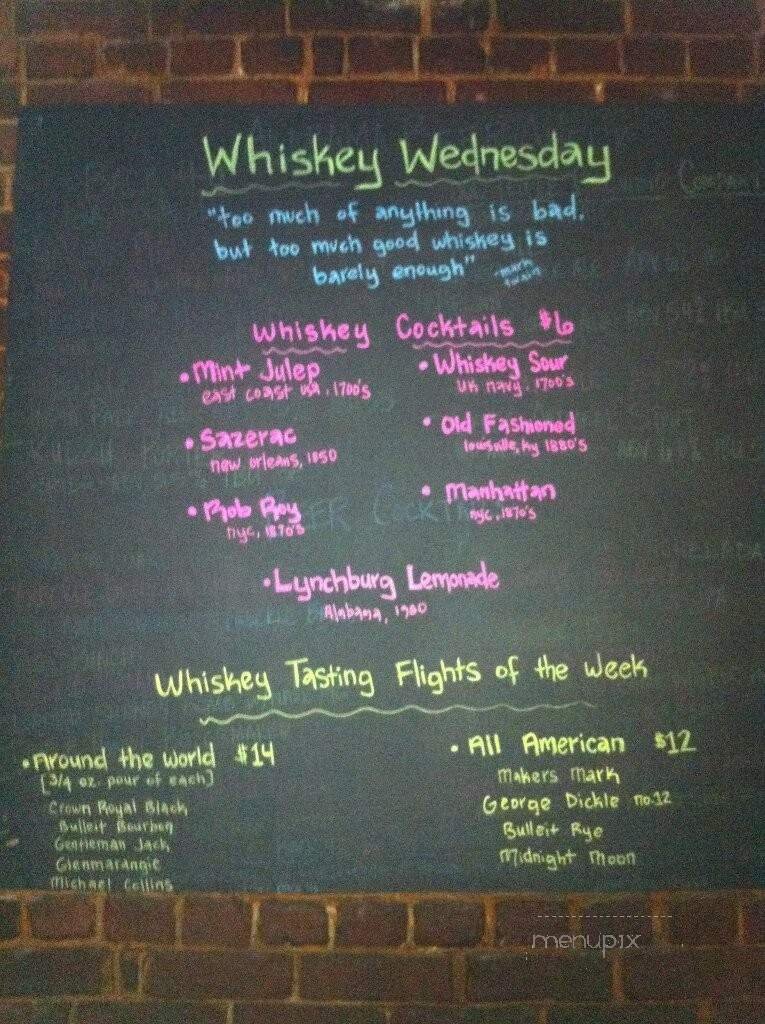 Whiskey Wednesday
"too much of anything is bad.
but too much good whiskey is
barely enough" -mark
twain
Whiskey Cocktails $6
• Mint Julep
east coast usa, 1700's
• Sazerac
new orleans, 1850
• Rob Roy
nyc, 1870's
• Whiskey Sour
UK navy, 1700's
• Old Fashioned
louisville, ky 1880's
• Manhattan
nyc, 1870's
• Lynchburg Lemonade
Alabama, 1980
Whiskey Tasting Flights of the Week
• Around the world $14
[3/4 oz. pour of each]
Crown Royal Black
Bulleit Bourbon
Gentleman Jack
Glenmarangie
Michael Collins
• All American $12
Makers Mark
George Dickle no.12
Bulleit Rye
Midnight Moon
menupix